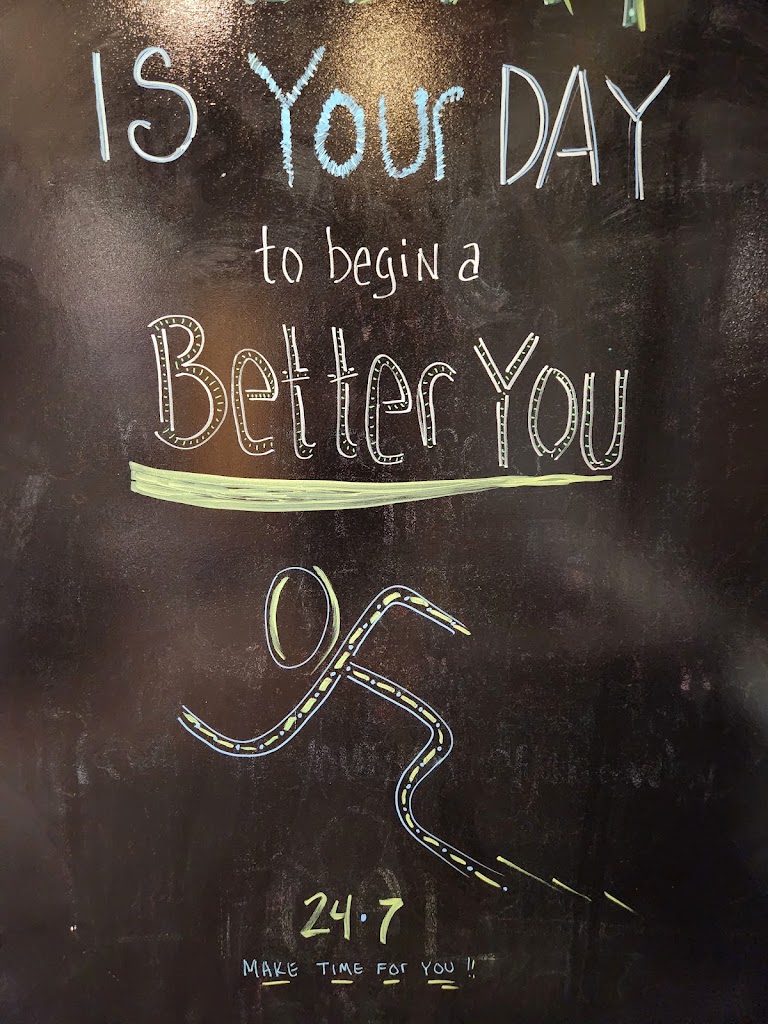 IS Your DAY
to begin a
Better You
24·7
MAKE TIME FOr YOU !!